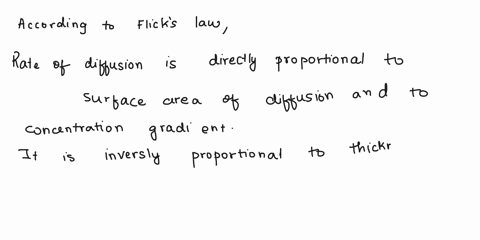 According to Flick's law,
Rate of diffusion is directly proportional to
surface area of diffusion and to
concentration gradient.
It is inversly proportional to thickr